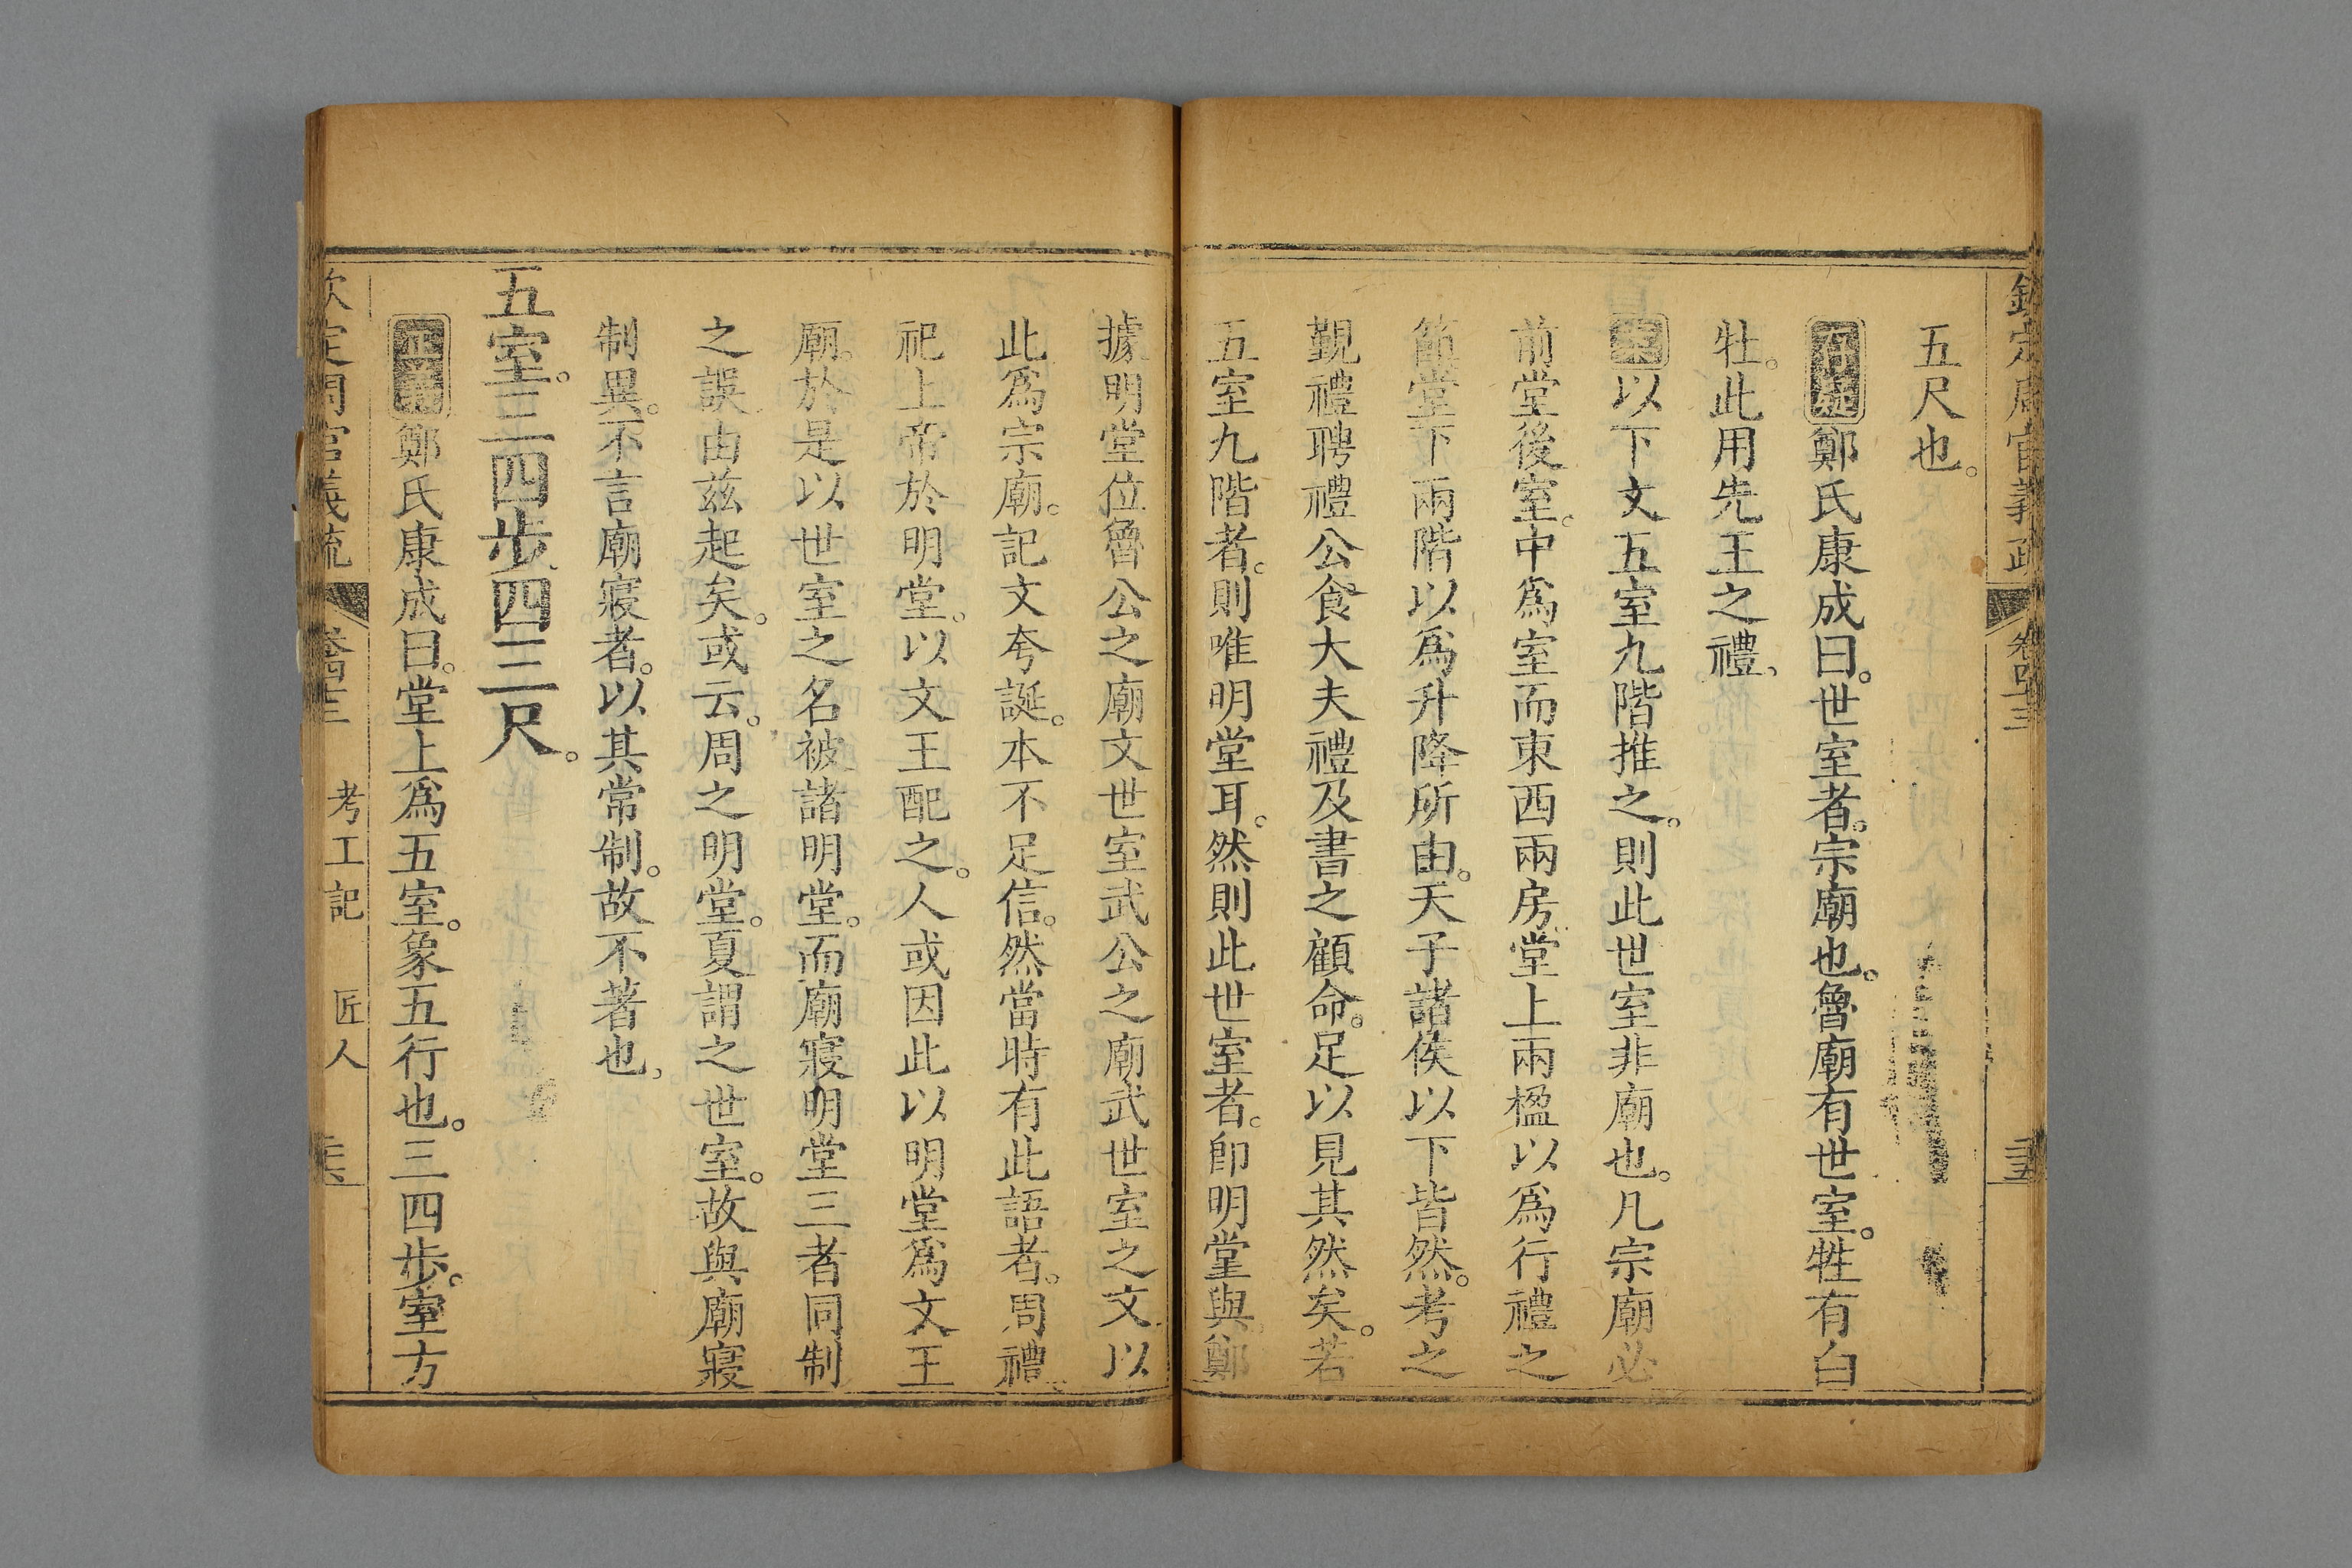 欽定周官義疏 卷四十三
五尺也。
存疑鄭氏康成曰。世室者。宗廟也。魯廟有世室。牲有白
牡。此用先王之禮、
案以下文五室九階推之。則此世室非廟也。凡宗廟必
前堂後室。中爲室而東西兩房。堂上兩楹以爲行禮之
節。堂下兩階以爲升降所由。天子諸侯以下皆然。考之
覲禮聘禮公食大夫禮及書之顧命。足以見其然矣。若
五室九階者。則唯明堂耳。然則此世室者。卽明堂與鄭
據明堂位魯公之廟文世室武公之廟武世室之文以
此爲宗廟。記文夸誕。本不足信。然當時有此語者。周禮
祀上帝於明堂。以文王配之。人或因此以明堂爲文王
廟。於是以世室之名被諸明堂。而廟寢明堂三者同制
之誤由茲起矣。或云。周之明堂。夏謂之世室。故與廟寢
制異。不言廟寢者。以其常制。故不著也、
五室。三四步四三尺。
正義鄭氏康成曰。堂上爲五室。象五行也。三四步。室方
欽定周官義疏 卷四十三 考工記 匠人